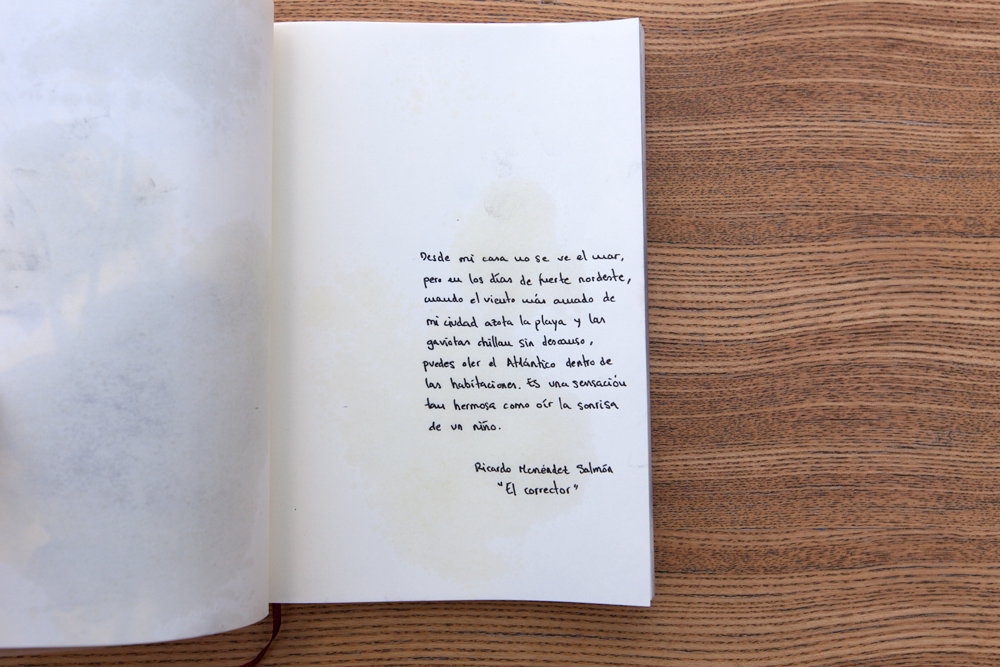 Desde mi casa no se ve el mar,
pero en los días de fuerte nordeste,
cuando el viento más amado de
mi ciudad azota la playa y las
gaviotas chillan sin descanso,
puedes oler el Atlántico dentro de
las habitaciones. Es una sensación
tan hermosa como oír la sonrisa
de un niño.
Ricardo Menéndez Salmón
"El corrector"